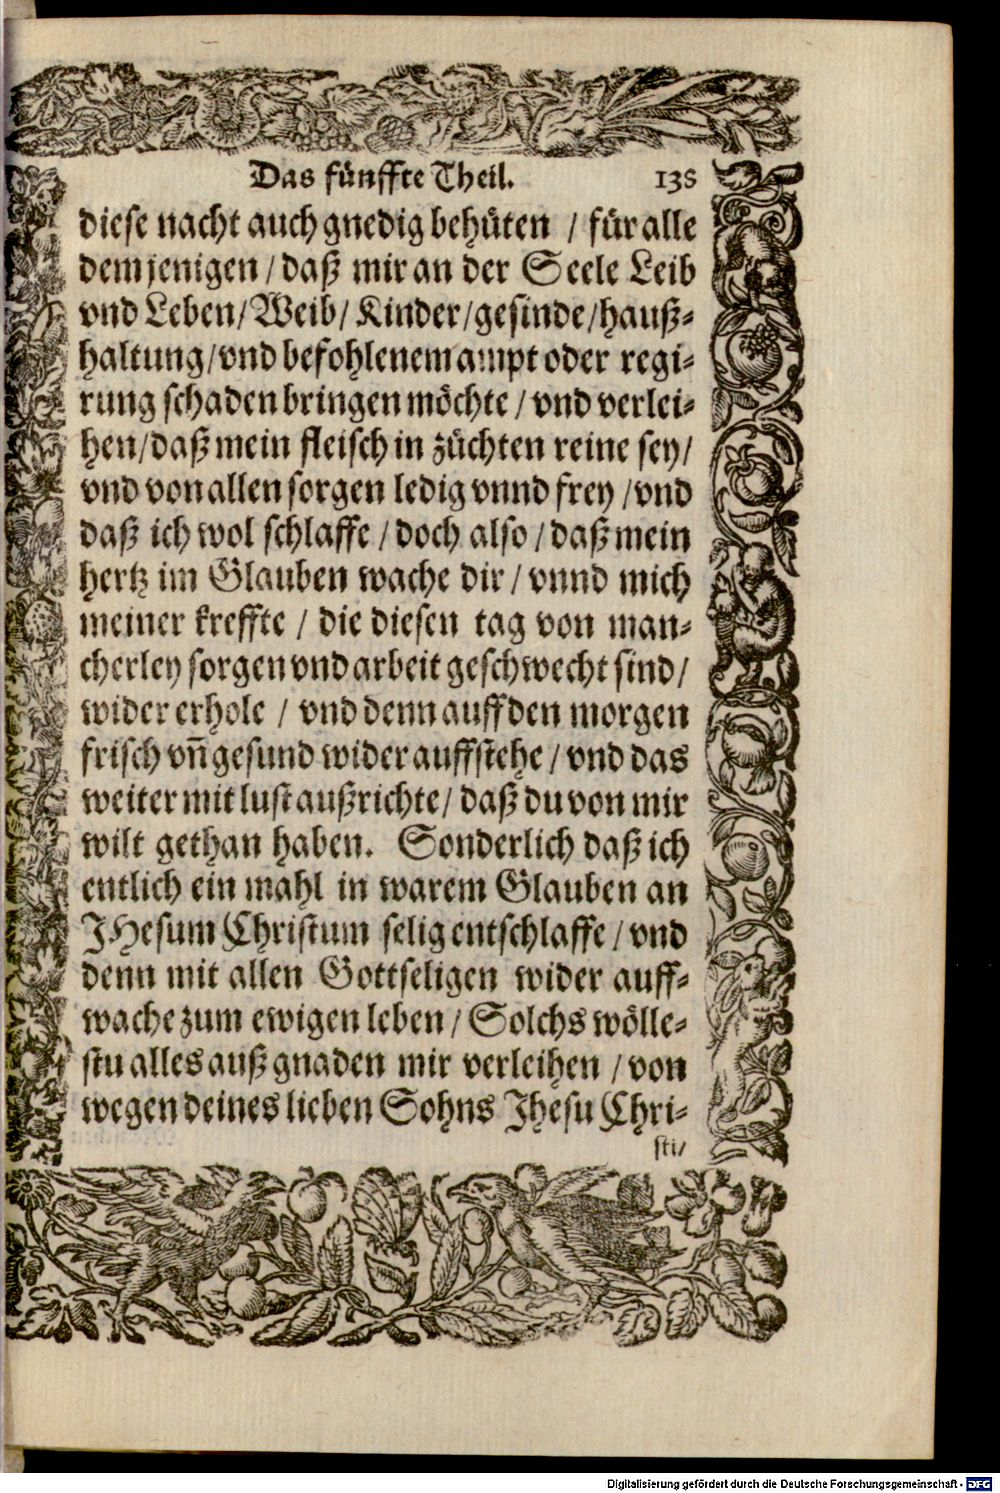 Das fünffte Theil. 135
diese nacht auch gnedig behüten / für alle
dem jenigen / daß mir an der Seele Leib
vnd Leben / Weib / Kinder / gesinde / hauß-
haltung / vnd befohlenem ampt oder regi-
rung schaden bringen möchte / vnd verlei-
hen / daß mein fleisch in züchten reine sey /
vnd von allen sorgen ledig vnnd frey / vnd
daß ich wol schlaffe / doch also / daß mein
hertz im Glauben wache dir / vnnd mich
meiner kreffte / die diesen tag von man-
cherley sorgen vnd arbeit geschwecht sind /
wider erhole / vnd denn auff den morgen
frisch vñ gesund wider auffstehe / vnd das
weiter mit lust außrichte / daß du von mir
wilt gethan haben. Sonderlich daß ich
entlich ein mahl in warem Glauben an
JHesum Christum selig entschlaffe / vnd
denn mit allen Gottseligen wider auff-
wache zum ewigen leben / Solchs wölle-
stu alles auß gnaden mir verleihen / von
wegen deines lieben Sohns Jhesu Chri-
sti /
Digitalisierung gefördert durch die Deutsche Forschungsgemeinschaft - DFG